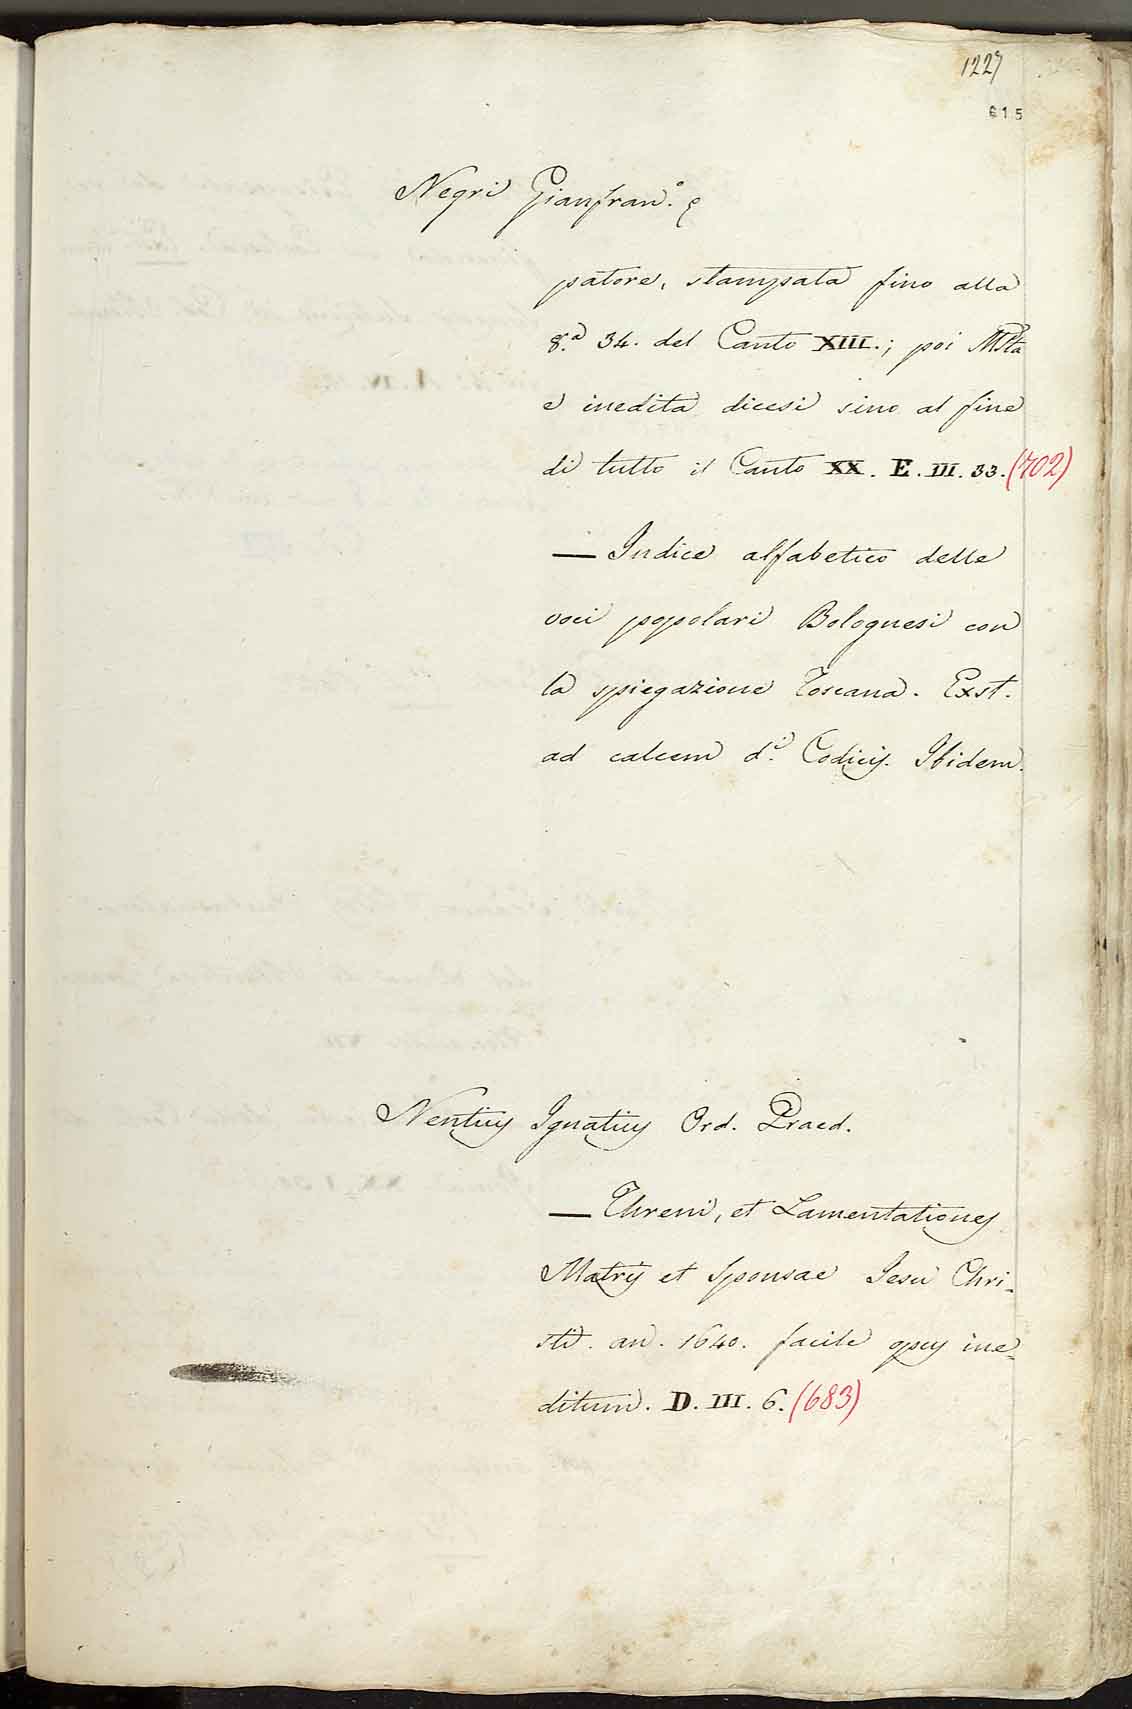 1227
615
Negri Gianfran.º
patore, stampata fino alla
8.ª 34. del Canto XIII.; poi MSta
e inedita dicesi sino al fine
di tutto il Canto XX. E. III. 33. (702)
— Indice alfabetico delle
voci popolari Bolognesi con
la spiegazione Toscana. Exst.
ad calcem d.i Codicis. Ibidem.
Nentius Ignatius Ord. Praed.
— Threni, et Lamentationes
Matris et Sponsae Iesu Chri-
sti. an. 1640. facile opus ine-
ditum. D. III. 6. (683)